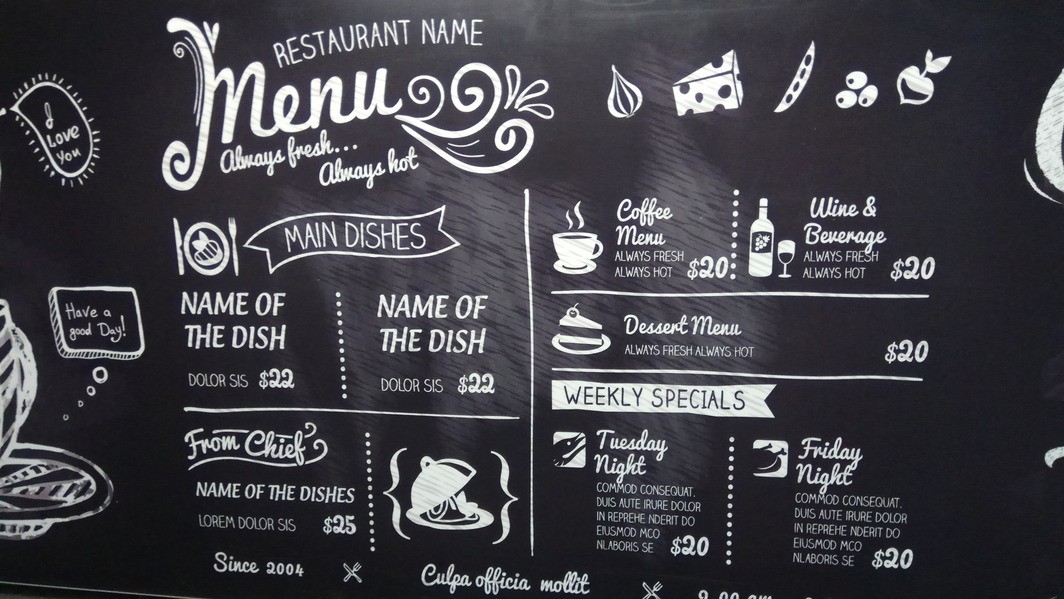 RESTAURANT NAME
Menu
Always fresh...
Always hot
I
Love
You
MAIN DISHES
NAME OF
THE DISH
DOLOR SIS $22
NAME OF
THE DISH
DOLOR SIS $22
Have a
good Day!
From Chief
NAME OF THE DISHES
LOREM DOLOR SIS $25
Since 2004
Culpa officia mollit
Coffee
Menu
ALWAYS FRESH
ALWAYS HOT $20
Wine &
Beverage
ALWAYS FRESH
ALWAYS HOT $20
Dessert Menu
ALWAYS FRESH ALWAYS HOT $20
WEEKLY SPECIALS
Tuesday
Night
COMMOD CONSEQUAT.
DUIS AUTE IRURE DOLOR
IN REPREHE NDERIT DO
EIUSMOD MCO
NLABORIS SE $20
Friday
Night
COMMOD CONSEQUAT.
DUIS AUTE IRURE DOLOR
IN REPREHE NDERIT DO
EIUSMOD MCO
NLABORIS SE $20